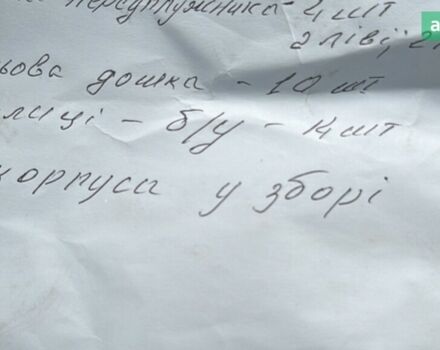 передплужника - 4 шт
2 ліві, 2
ьова дошка - 10 шт
лиці - б/у - 14 шт
корпуса у зборі